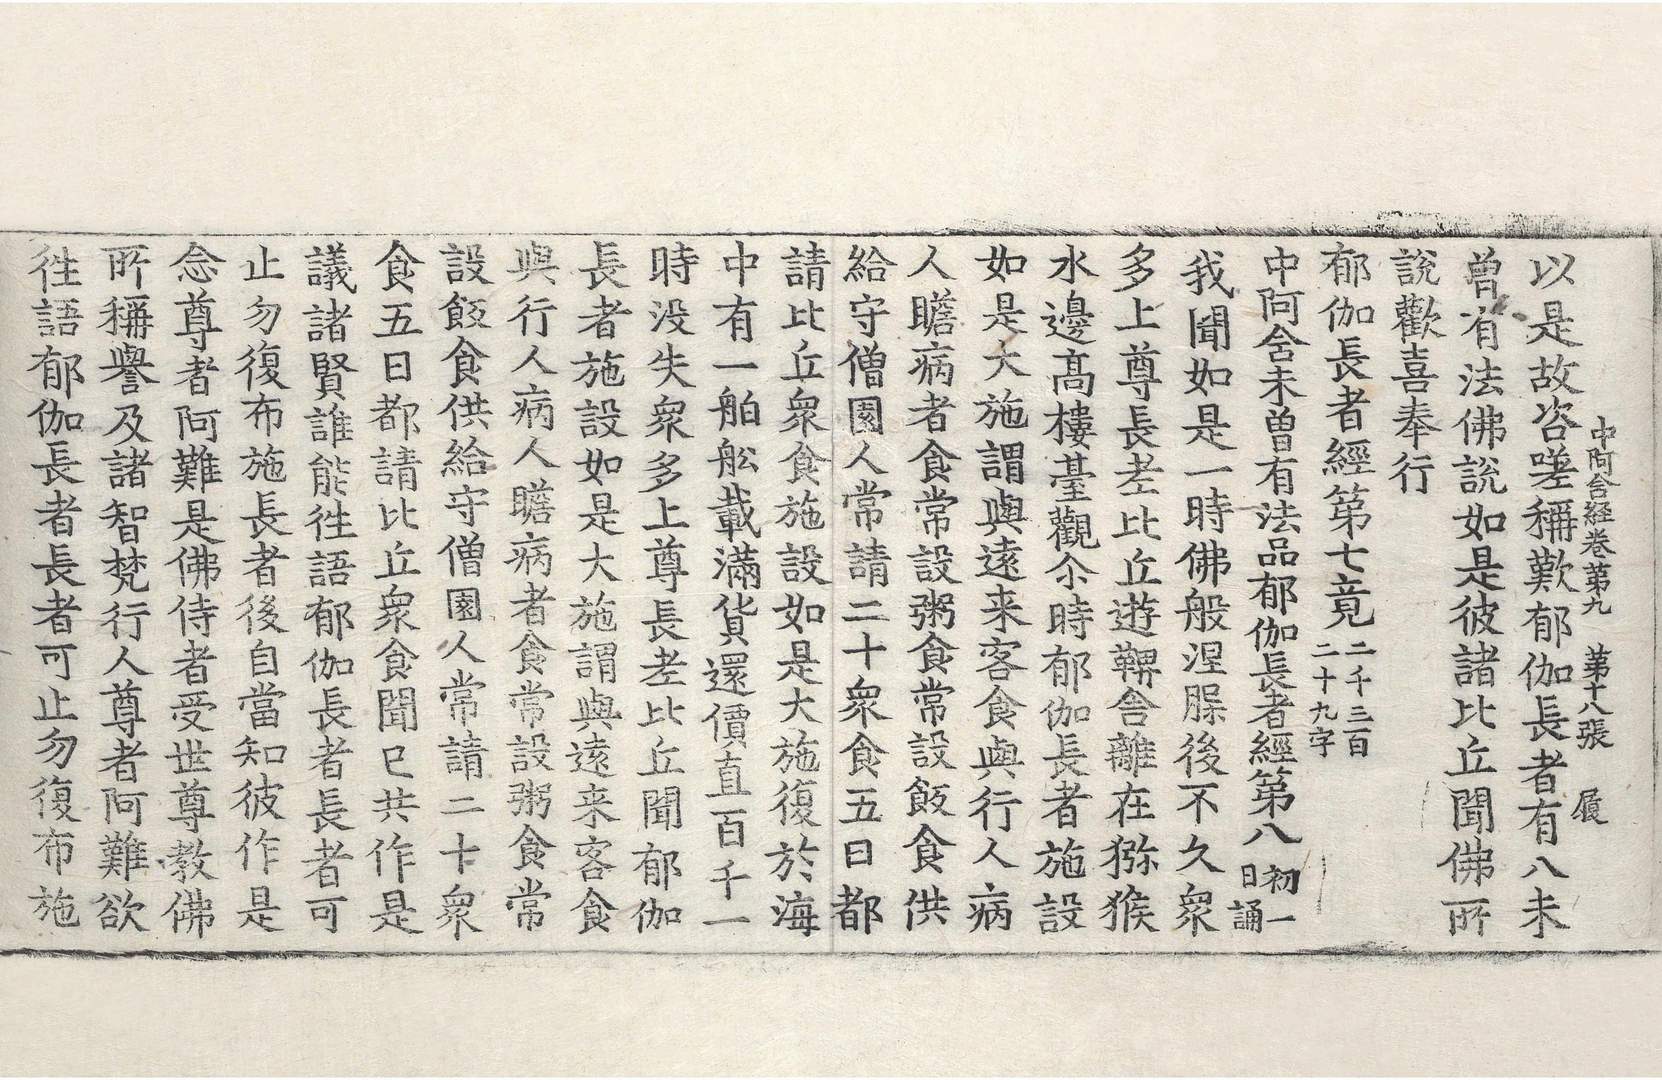 中阿含経卷第九　第十八張　履
以是故咨嗟稱歎郁伽長者有八未
曽有法佛說如是彼諸比丘聞佛所
說歡喜奉行
郁伽長者經第七竟二千三百二十九字
中阿含未曽有法品郁伽長者經第八初一日誦
我聞如是一時佛般涅䏶後不久衆
多上尊長老比丘遊鞞舍離在獼猴
水邊髙樓臺觀尒時郁伽長者施設
如是大施謂與遠来客食與行人病
人瞻病者食常設粥食常設飯食供
給守僧園人常請二十衆食五日都
請比丘衆食施設如是大施復於海
中有一舶舩載滿貨還價直百千一
時没失衆多上尊長老比丘聞郁伽
長者施設如是大施謂與遠来客食
與行人病人瞻病者食常設粥食常
設飯食供給守僧園人常請二十衆
食五日都請比丘衆食聞已共作是
議諸賢誰能徃語郁伽長者長者可
止勿復布施長者後自當知彼作是
念尊者阿難是佛侍者受世尊教佛
所稱譽及諸智梵行人尊者阿難欲
徃語郁伽長者長者可止勿復布施